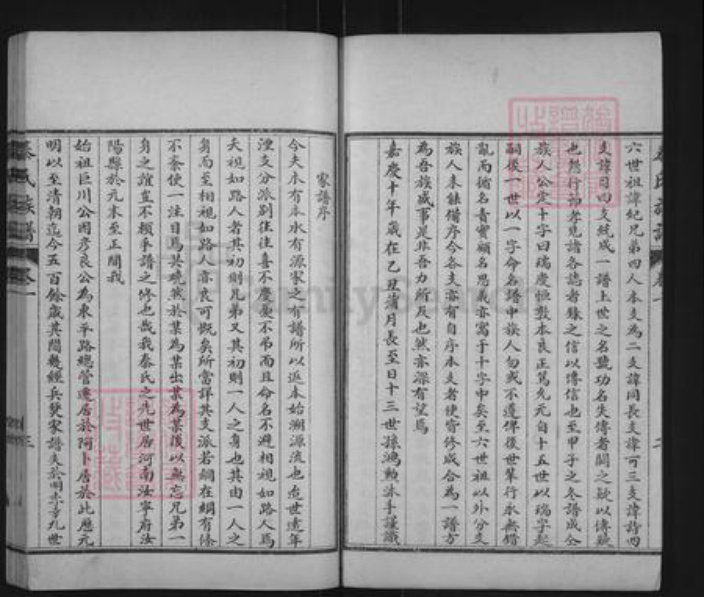 六世祖諱紀兄弟四人本支為二支諱同長支諱可三支諱詩四
支諱自四支統成一譜上世之名號功名失傳者闕之疑以傳疑
也懸行節孝見諸各誌者錄之信以傳信也至甲子之冬譜成仝
族人公定十字曰瑞慶恒敦本良正篤允元自十五世以瑞字起
嗣後一世以一字命名譜中族人勿或不遵俾後世輩行永無錯
亂而循名責實顧名思義亦寓于十字中矣至六世祖以外分支
族人未能備序今各支亦有自序本支者使皆修成合為一譜方
為吾族盛事是非吾力所及也然亦深有望焉
嘉慶十年歲在乙丑葭月長至日十三世孫鴻勲沐手謹識
家譜序
今夫木有本水有源家之有譜所以返本始溯源流也迨世遠年
湮支分派別往往喜不慶憂不吊而且命名不避相視如路人焉
夫視如路人者其初則兄弟又其初則一人之身也其由一人之
身而至相視如路人亦良可慨矣所當詳其支派若網在綱有條
不紊使一注目焉其曉然於某為某出某為某後以無忘兄弟一
身之誼豈不賴乎譜之修也哉我秦氏之先世居河南汝寧府汝
陽縣於元末至正間我
始祖巨川公因彥良公為東平路總管遷居於阿卜居於此歷元
明以至清朝迄今五百餘歲其間幾經兵燹家譜支於明末寺九世
秦氏族譜
卷一
二
秦氏族譜
卷一
三